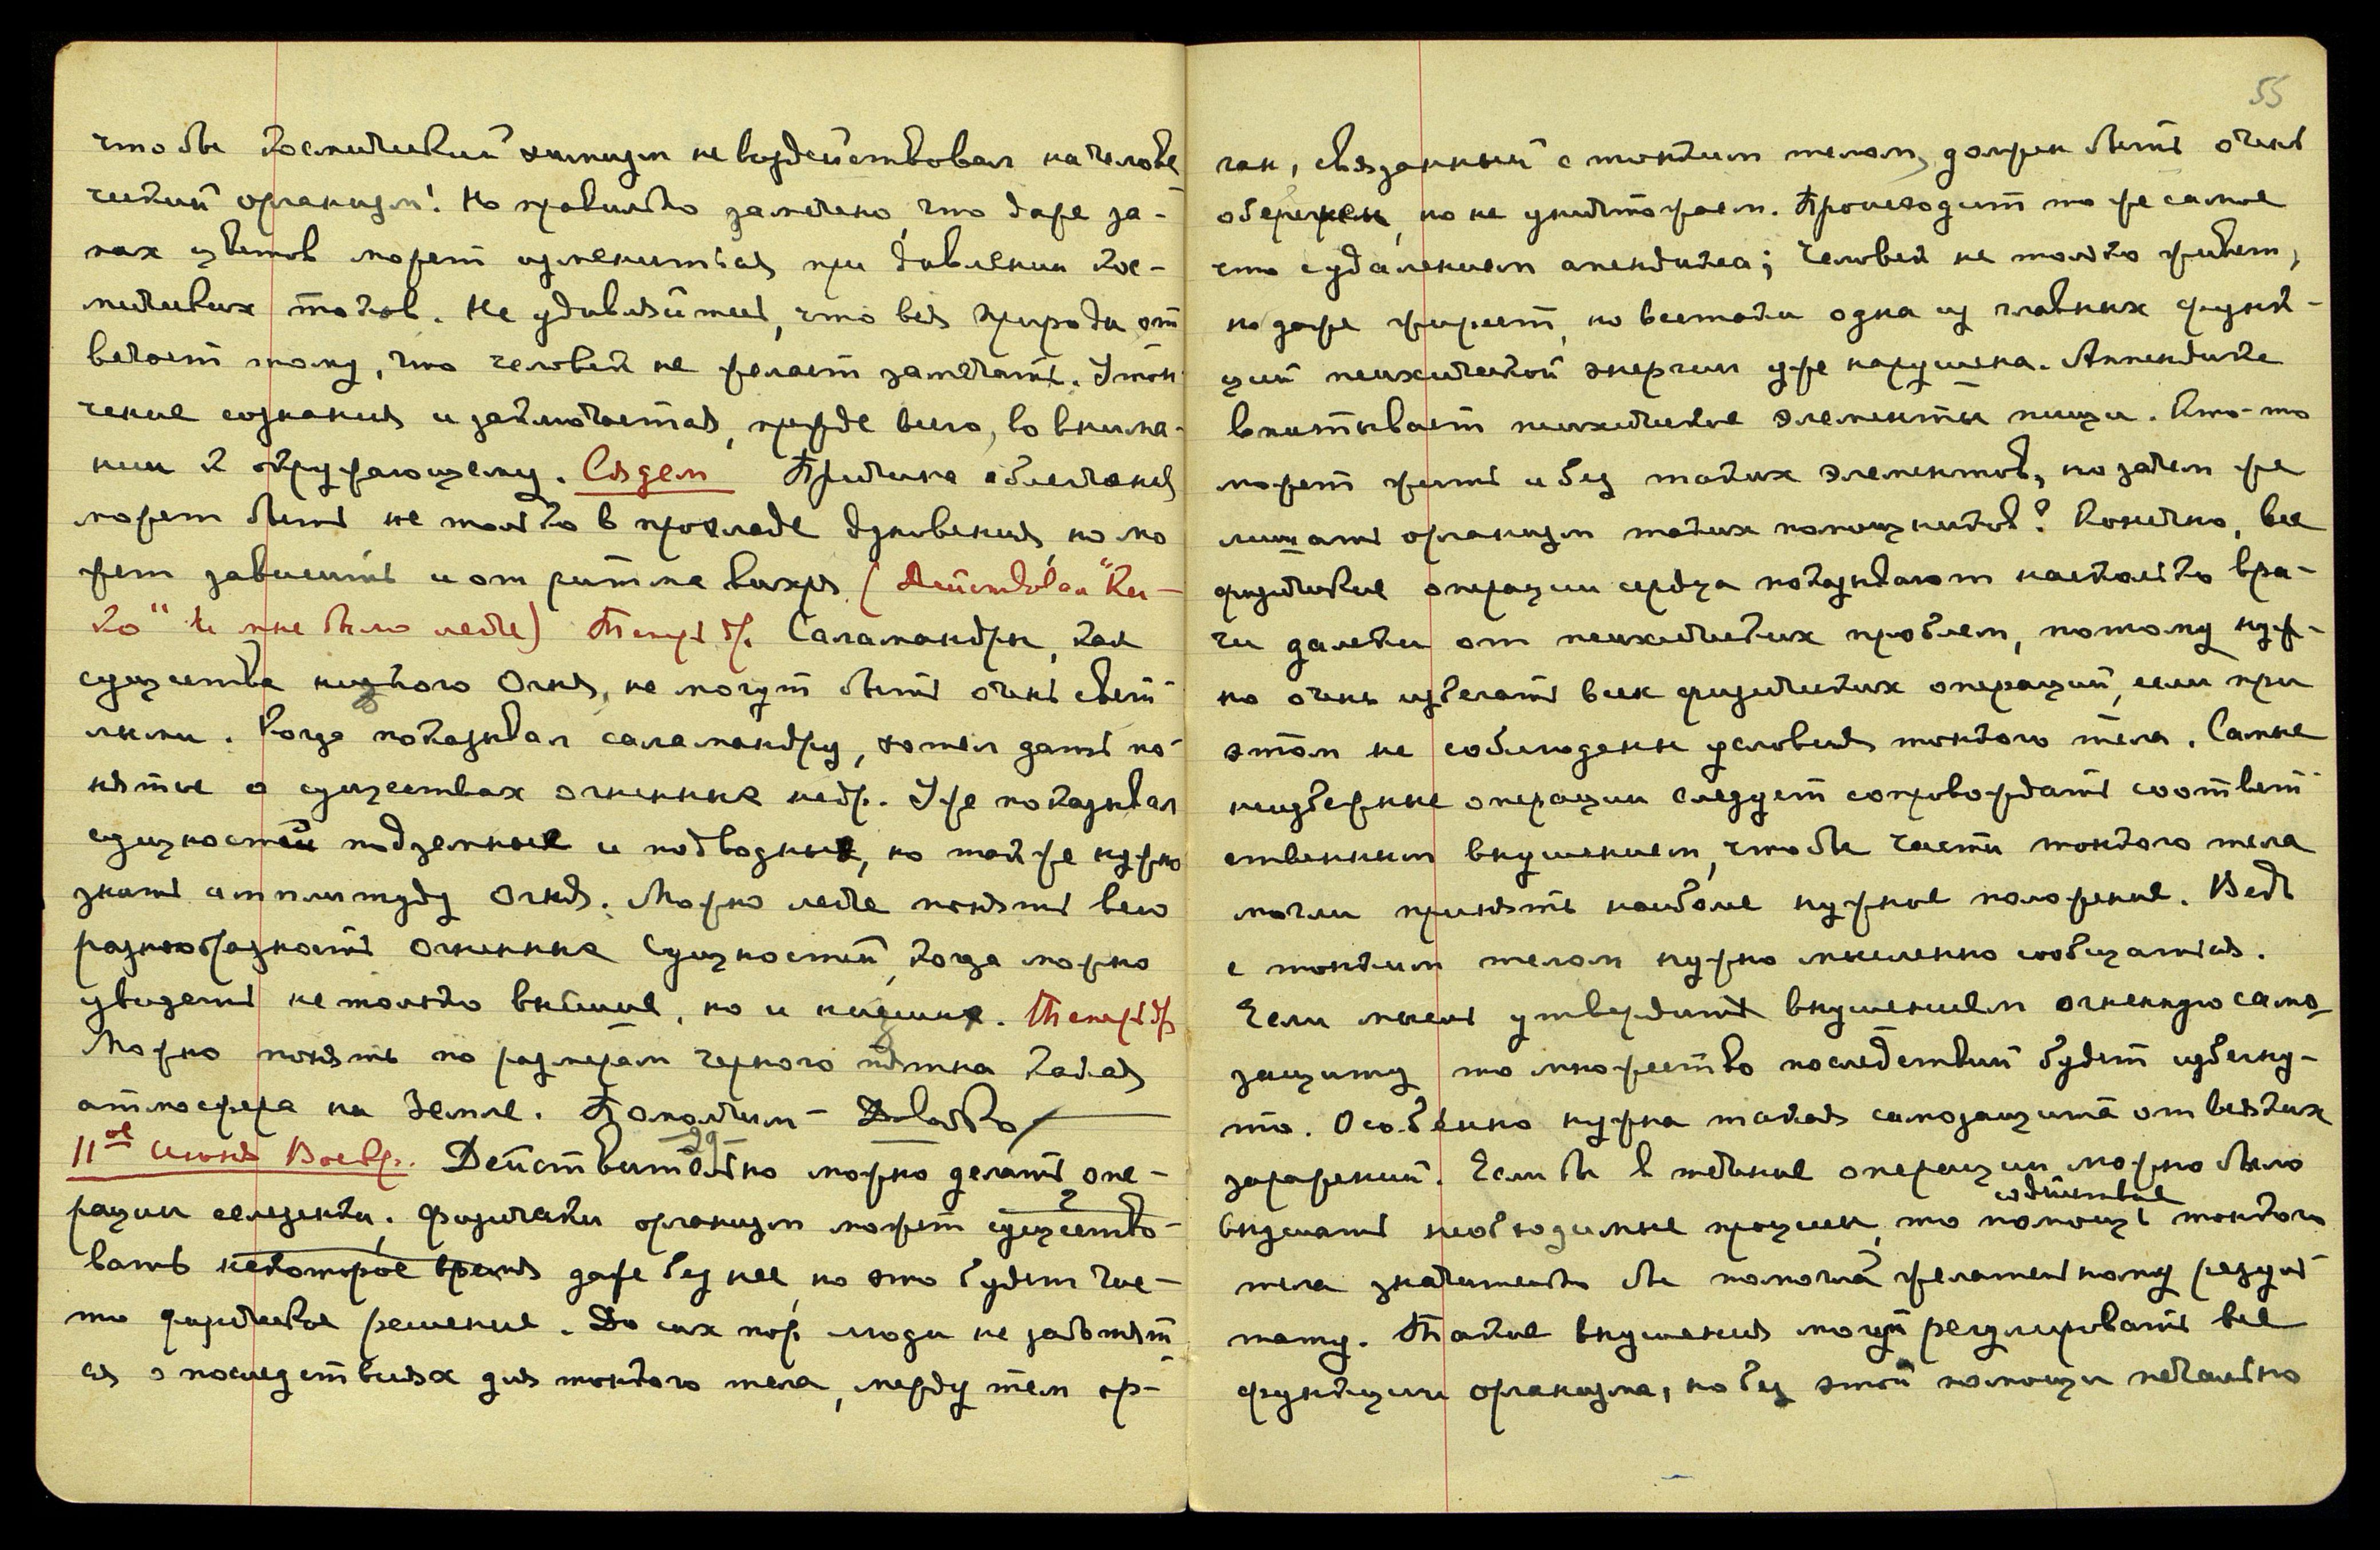 чтобы космический химизм не воздействовал на челове
ческий организм! Но правильно замечено, что даже за-
пах цветов может измениться при давлении кос-
мических токов. Не удивляйтесь, что вся природа от
вечает тому, что человек не желает замечать. Утон
чение сознания и заключается, прежде всего, во внима-
нии к окружающему. Сядем Причина облегчения
может быть не только в прохладе дуновения, но мо
жет зависеть и от ритма вихря (Действовал
и мне было легче) Теперь др. Саламандры, как
существа низкого Огня, не могут быть очень свет
лыми. Когда показывал саламандру, хотел дать по-
нятие о существах огненных недр. Уже показывал
сущностей подземных и подводных, но также нужно
знать амплитуду Огня. Можно легче понять всю
разнообразность Огненных Сущностей, когда можно
увидеть не только высшие, но и низшие. Теперь др
Можно понять по размерам черного пятна какая
атмосфера на Земле. Помолчим — Довольно
11ое июня Воскр. Действительно можно делать опе-
29
рации селезенки. Физически организм может существо-
2
вать некоторое время даже без нее, но это будет чис-
то физическое решение. До сих пор люди не заботят
ся о последствиях для тонкого тела, между тем ор-
55
ган, связанный с тонким телом, должен быть очень
обережен, но не уничтожаем. Происходит то же самое
что с удалением апендикса; человек не только живет,
но даже жиреет, но всетаки одна из главных функ-
ций психической энергии уже нарушена. Аппендикс
впитывает психические элементы пищи. Кто-то
может жить и без таких элементов, но зачем же
лишать организм таких помощников? Конечно, все
физические операции сердца показывают насколько вра-
чи далеки от психических проблем, потому нуж-
но очень избегать всех физических операций, если при
этом не соблюдены условия тонкого тела. Самые
неизбежные операции следует сопровождать соответ
ственным внушением, чтобы части тонкого тела
могли принять наиболее нужное положение. Ведь
с тонким телом нужно мысленно сообщаться.
Если мысль утвердит внушением огненную само-
защиту то множество последствий будет избегну-
то. Особенно нужна такая самозащита от всяких
заражений. Если бы в течение операции можно было
содействие
внушать необходимые процессы, то помощь тонкого
тела значительно бы помогла желательному резуль
тату. Такие внушения могут регулировать все
функции организма, но без этой помощи печально